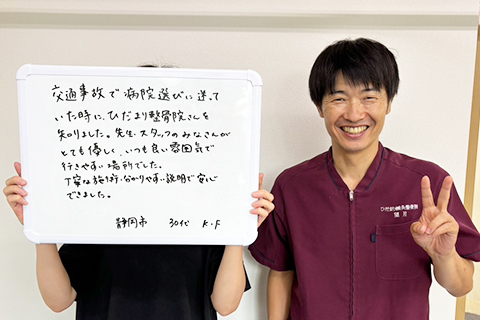 交通事故で病院選びに迷って
いた時に、ひだまり整骨院さんを
知りました。先生、スタッフのみなさんが
とても優しく、いつも良い雰囲気で
行きやすい場所でした。
丁寧な施術、分かりやすい説明で安心
できました。
静岡市 30代 K.F